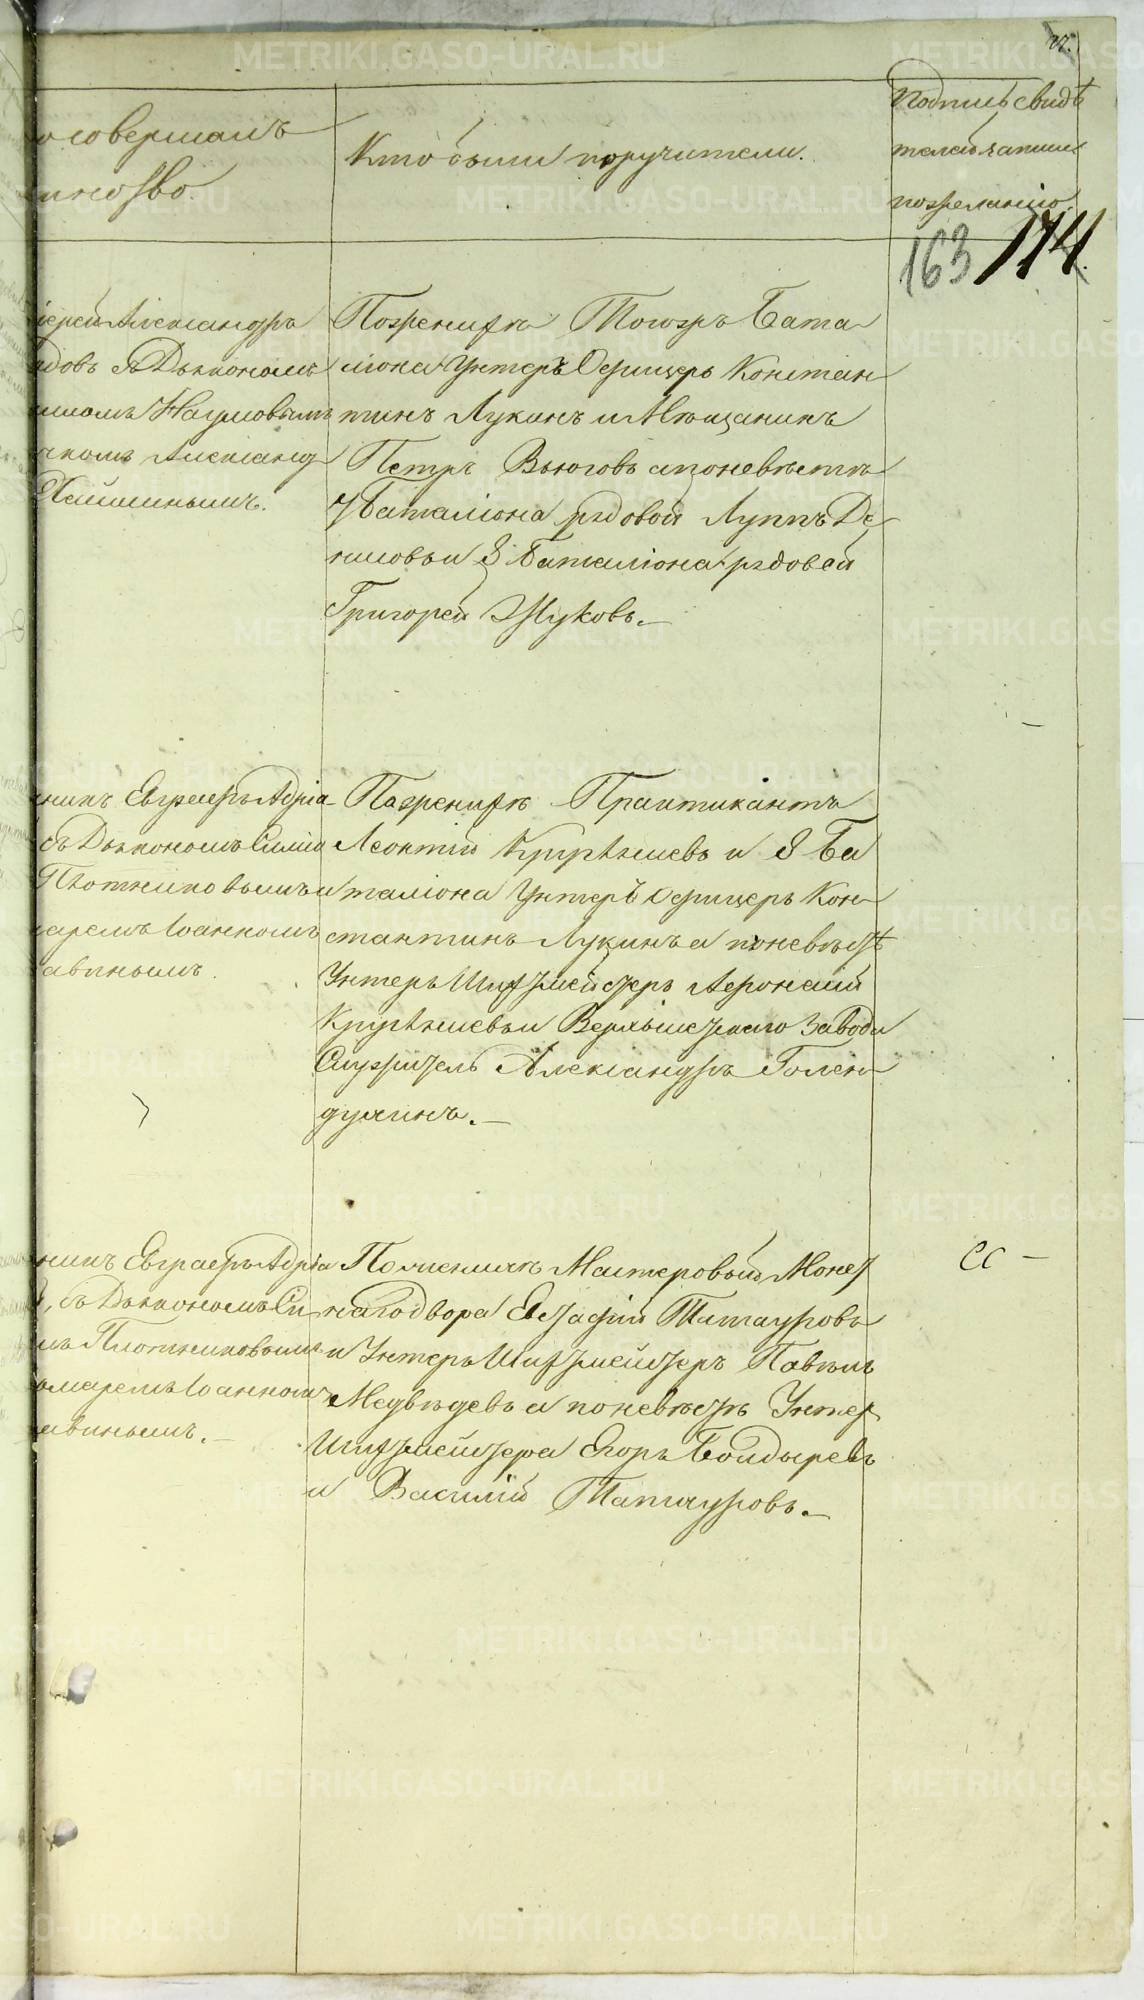 о совершалъ
инство.
Кто были поручители.
Подпись свидѣ
телей записи
по желанію.
163 174
іерей Александръ
довъ съ Дьякономъ
Наумовымъ
Александ
По женихѣ Тогожъ Бата
ліона Унтеръ Офицеръ Констан
тинъ Лукинъ и Мѣщанинъ
Петръ Вьюговъ а по невѣстѣ
Баталіона рядовой Луппъ Де
нисовъ и 8 Баталіона рядовой
Григорей Жуковъ.—
никъ Евграфъ Адріа
съ Дьякономъ Симео
Плотниковымъ и
маремъ Іоанномъ
авинымъ.
По женихѣ Практикантъ
Леонтій Кругляшевъ и 8 Ба
таліона Унтеръ Офицеръ Кон
стантинъ Лукинъ а по невѣстѣ
Унтеръ Шихтмейстеръ Афонасій
Кругляшевъ и Верхъисетскаго Завода
Служитель Александръ Голен
духинъ.—
никъ Евграфъ Адріа
, съ Дьякономъ Си
мъ Плотниковымъ
омаремъ Іоанномъ
авинымъ.—
По женихѣ Мастеровый Монет
наго двора Евстафій Татауровъ
и Унтеръ Шихтмейстеръ Павелъ
Медвѣдевъ а по невѣстѣ Унтер
Шихтмейстера Егоръ Болдыревъ
и Василій Татауровъ.—
METRIKI.GASO-URAL.RU